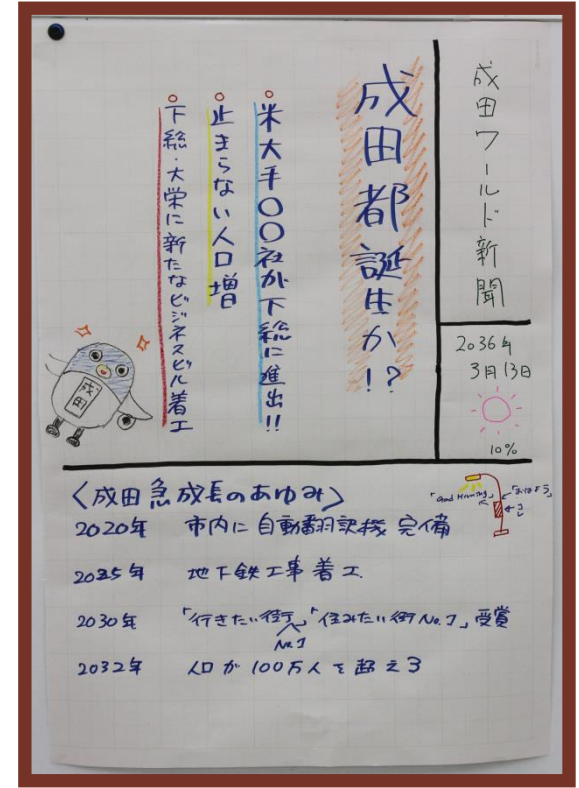 成田ワールド新聞
2036年
3月13日
10%
成田都誕生か!?
○米大手〇〇社が下総に進出!!
○止まらない人口増
○下総・大栄に新たなビジネスビル着工
成田
〈成田急成長のあゆみ〉
「Good Morning」
「おはよう」
2020年 市内に自動翻訳機完備
2025年 地下鉄工事着工.
2030年 「行きたい街No.1」「住みたい街No.1」受賞
2032年 人口が100万人を超える